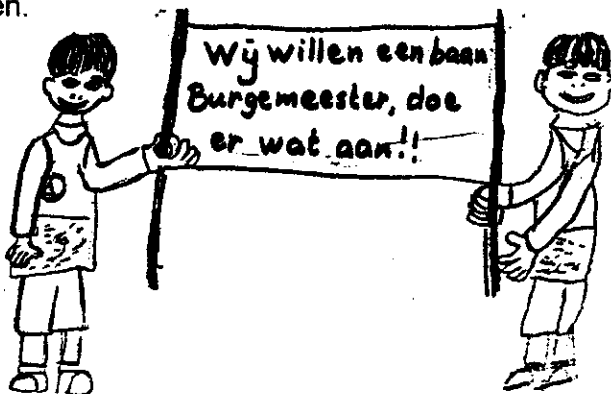 en.
Wij willen een baan
Burgemeester, doe
er wat aan!!